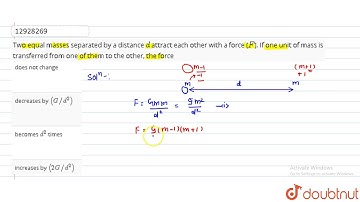 12928269
Two equal masses separated by a distance d attract each other with a force (F). If one unit of mass is
transferred from one of them to the other, the force
does not change
decreases by (G/d²)
becomes d² times
increases by (2G/d²)
Solⁿ-:
m-1
-1
m
d
(m+1)
+1
m
F = Gmm/d² = Gm²/d² -(i)
F = G(m-1)(m+1)
Activate Windows
doubtnut